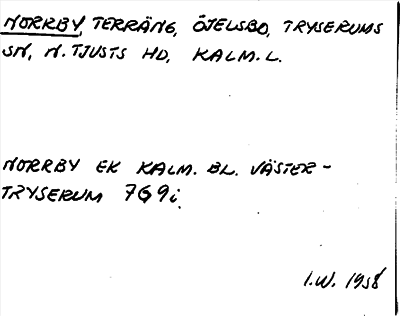 NORRBY, TERRÄNG, ÖJELSBO, TRYSERUMS
SN, N. TJUSTS HD, KALM. L.
NORRBY EK KALM. BL. VÄSTER-
TRYSERUM 7G9i.
I.W. 1958